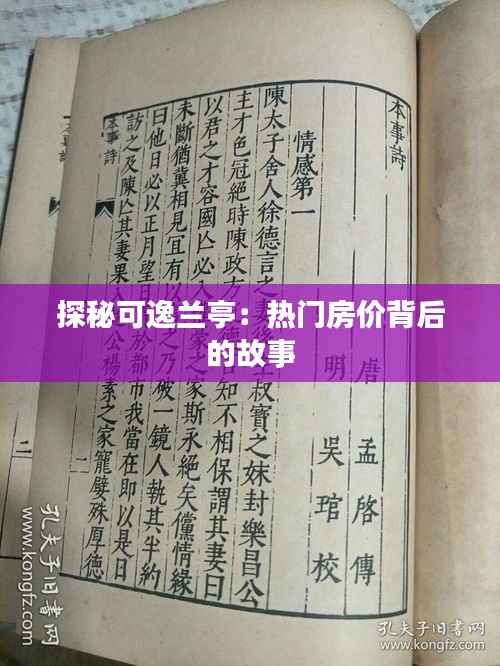 本事詩
唐 孟啓傳
明 吳琯校
情感第一
陳太子舍人徐德言之 叔寶之妹封樂昌公
主才色冠絕時陳政方 知不相保謂其妻曰
以君之才容國亾必入 豪之家斯永絕矣儻情緣
未斷猶冀相見宜有 之乃破一鏡人執其半約
曰他日必以正月望 於都市我當在即以是日
訪之及陳亾其妻果 公楊素之家寵嬖殊厚德
本事詩
二
二
探秘可逸兰亭：热门房价背后
的故事
孔夫子旧书网
www.kongfz.com
孔夫子旧书网
www.kongfz.com